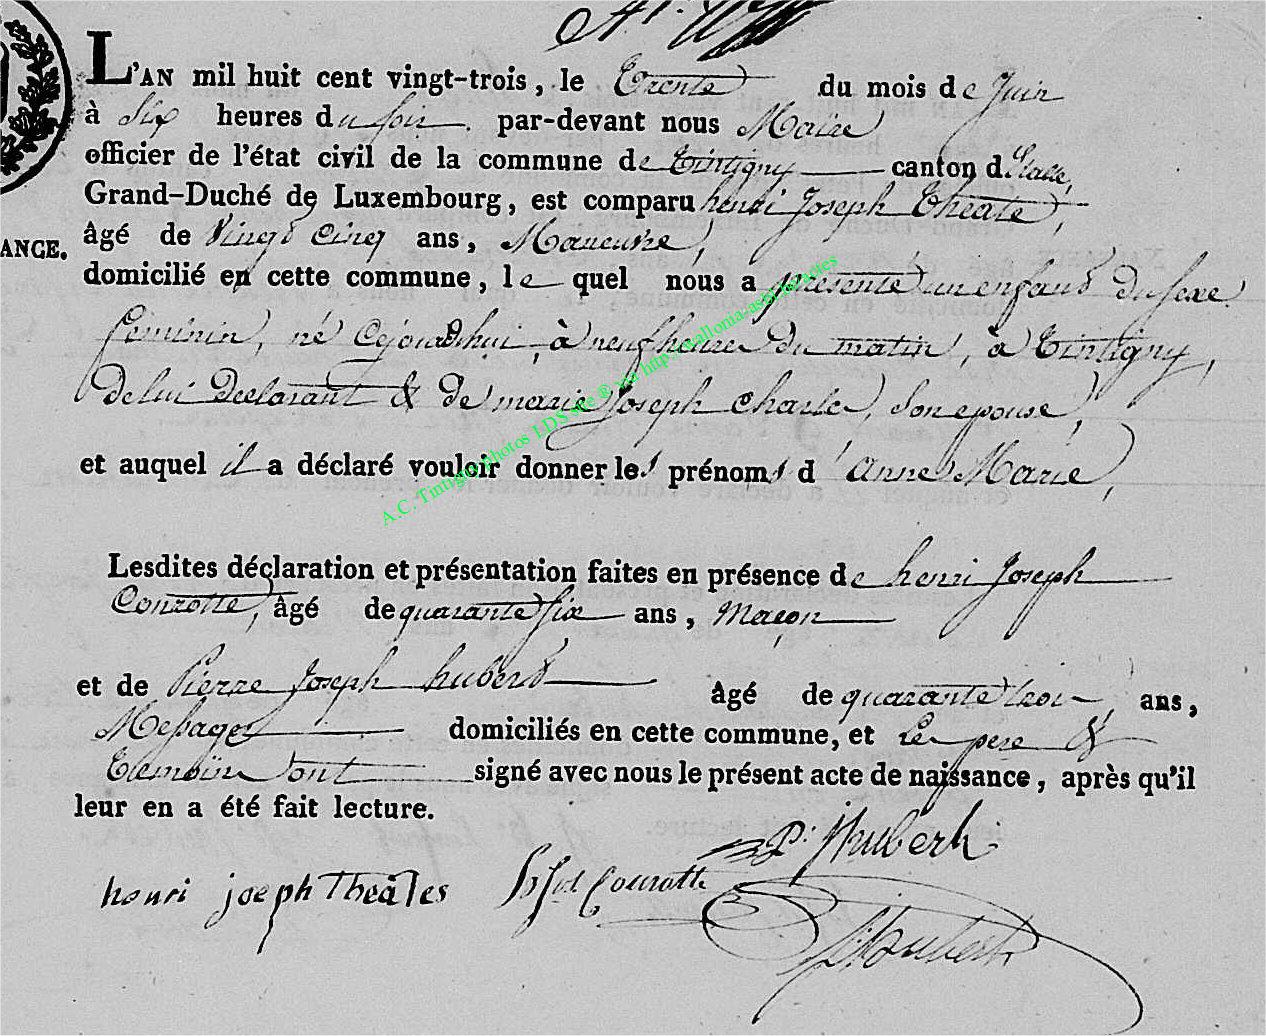 L'AN mil huit cent vingt-trois, le Trente du mois de Juin
à Six heures du soir par-devant nous Maire
officier de l'état civil de la commune de Tintigny canton d'Etalle,
Grand-Duché de Luxembourg, est comparu henri Joseph Théate,
ANGE.
âgé de Vingt Cinq ans, Maneuvre,
domicilié en cette commune, le quel nous a présenté un enfant du sexe
feminin, né Cejourdhui, à neuf heures du matin, à Tintigny,
de lui Declarant & de marie Joseph Charle, Son epouse,
et auquel il a déclaré vouloir donner les prénoms d'anne Marie,
A.C. Tintigny photos LDS site ® via http://wallonia-asbl.be/actes
Lesdites déclaration et présentation faites en présence de henri Joseph
Conrotte, âgé de quarante six ans, Maçon
et de Pierre Joseph hubert âgé de quarante troi ans,
Messager domiciliés en cette commune, et Le pere &
Temoin Sont signé avec nous le présent acte de naissance, après qu'il
leur en a été fait lecture.
P. J. hubert
henri joeph Theâtes Conrotte
Hubert